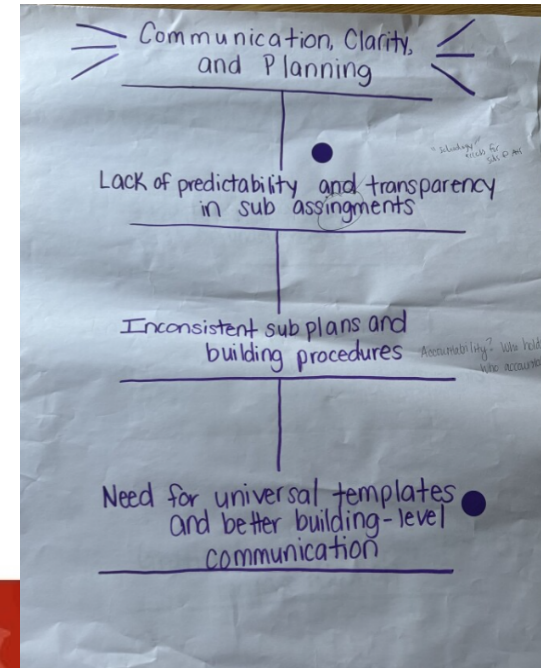 Communication, Clarity,
and Planning
Lack of predictability and transparency
in sub assingments
Inconsistent sub plans and
building procedures
Accountability? Who hold
who accounta
Need for universal templates
and better building-level
communication